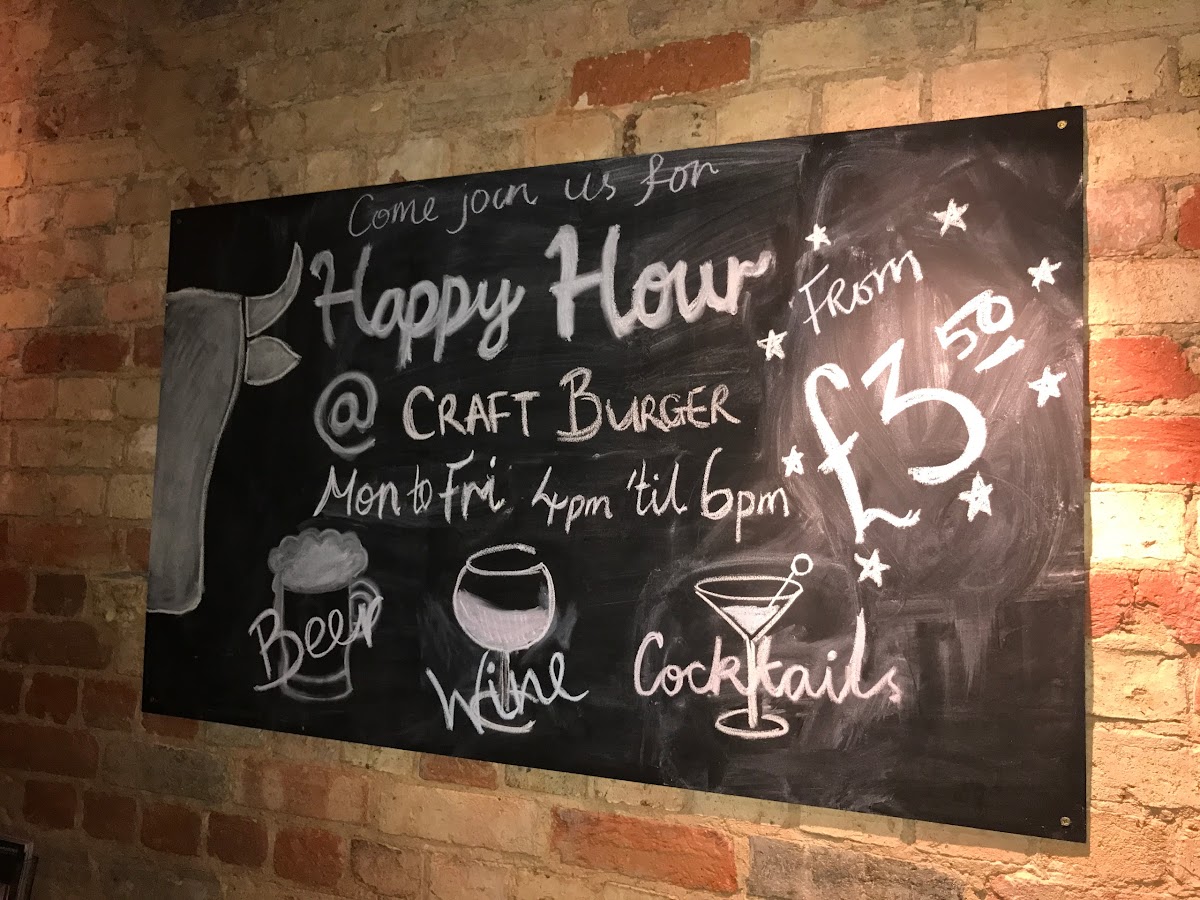 Come join us for
Happy Hour
@ CRAFT BURGER
Mon to Fri 4pm 'til 6pm
FROM
£3.50
Beer
Wine
Cocktails